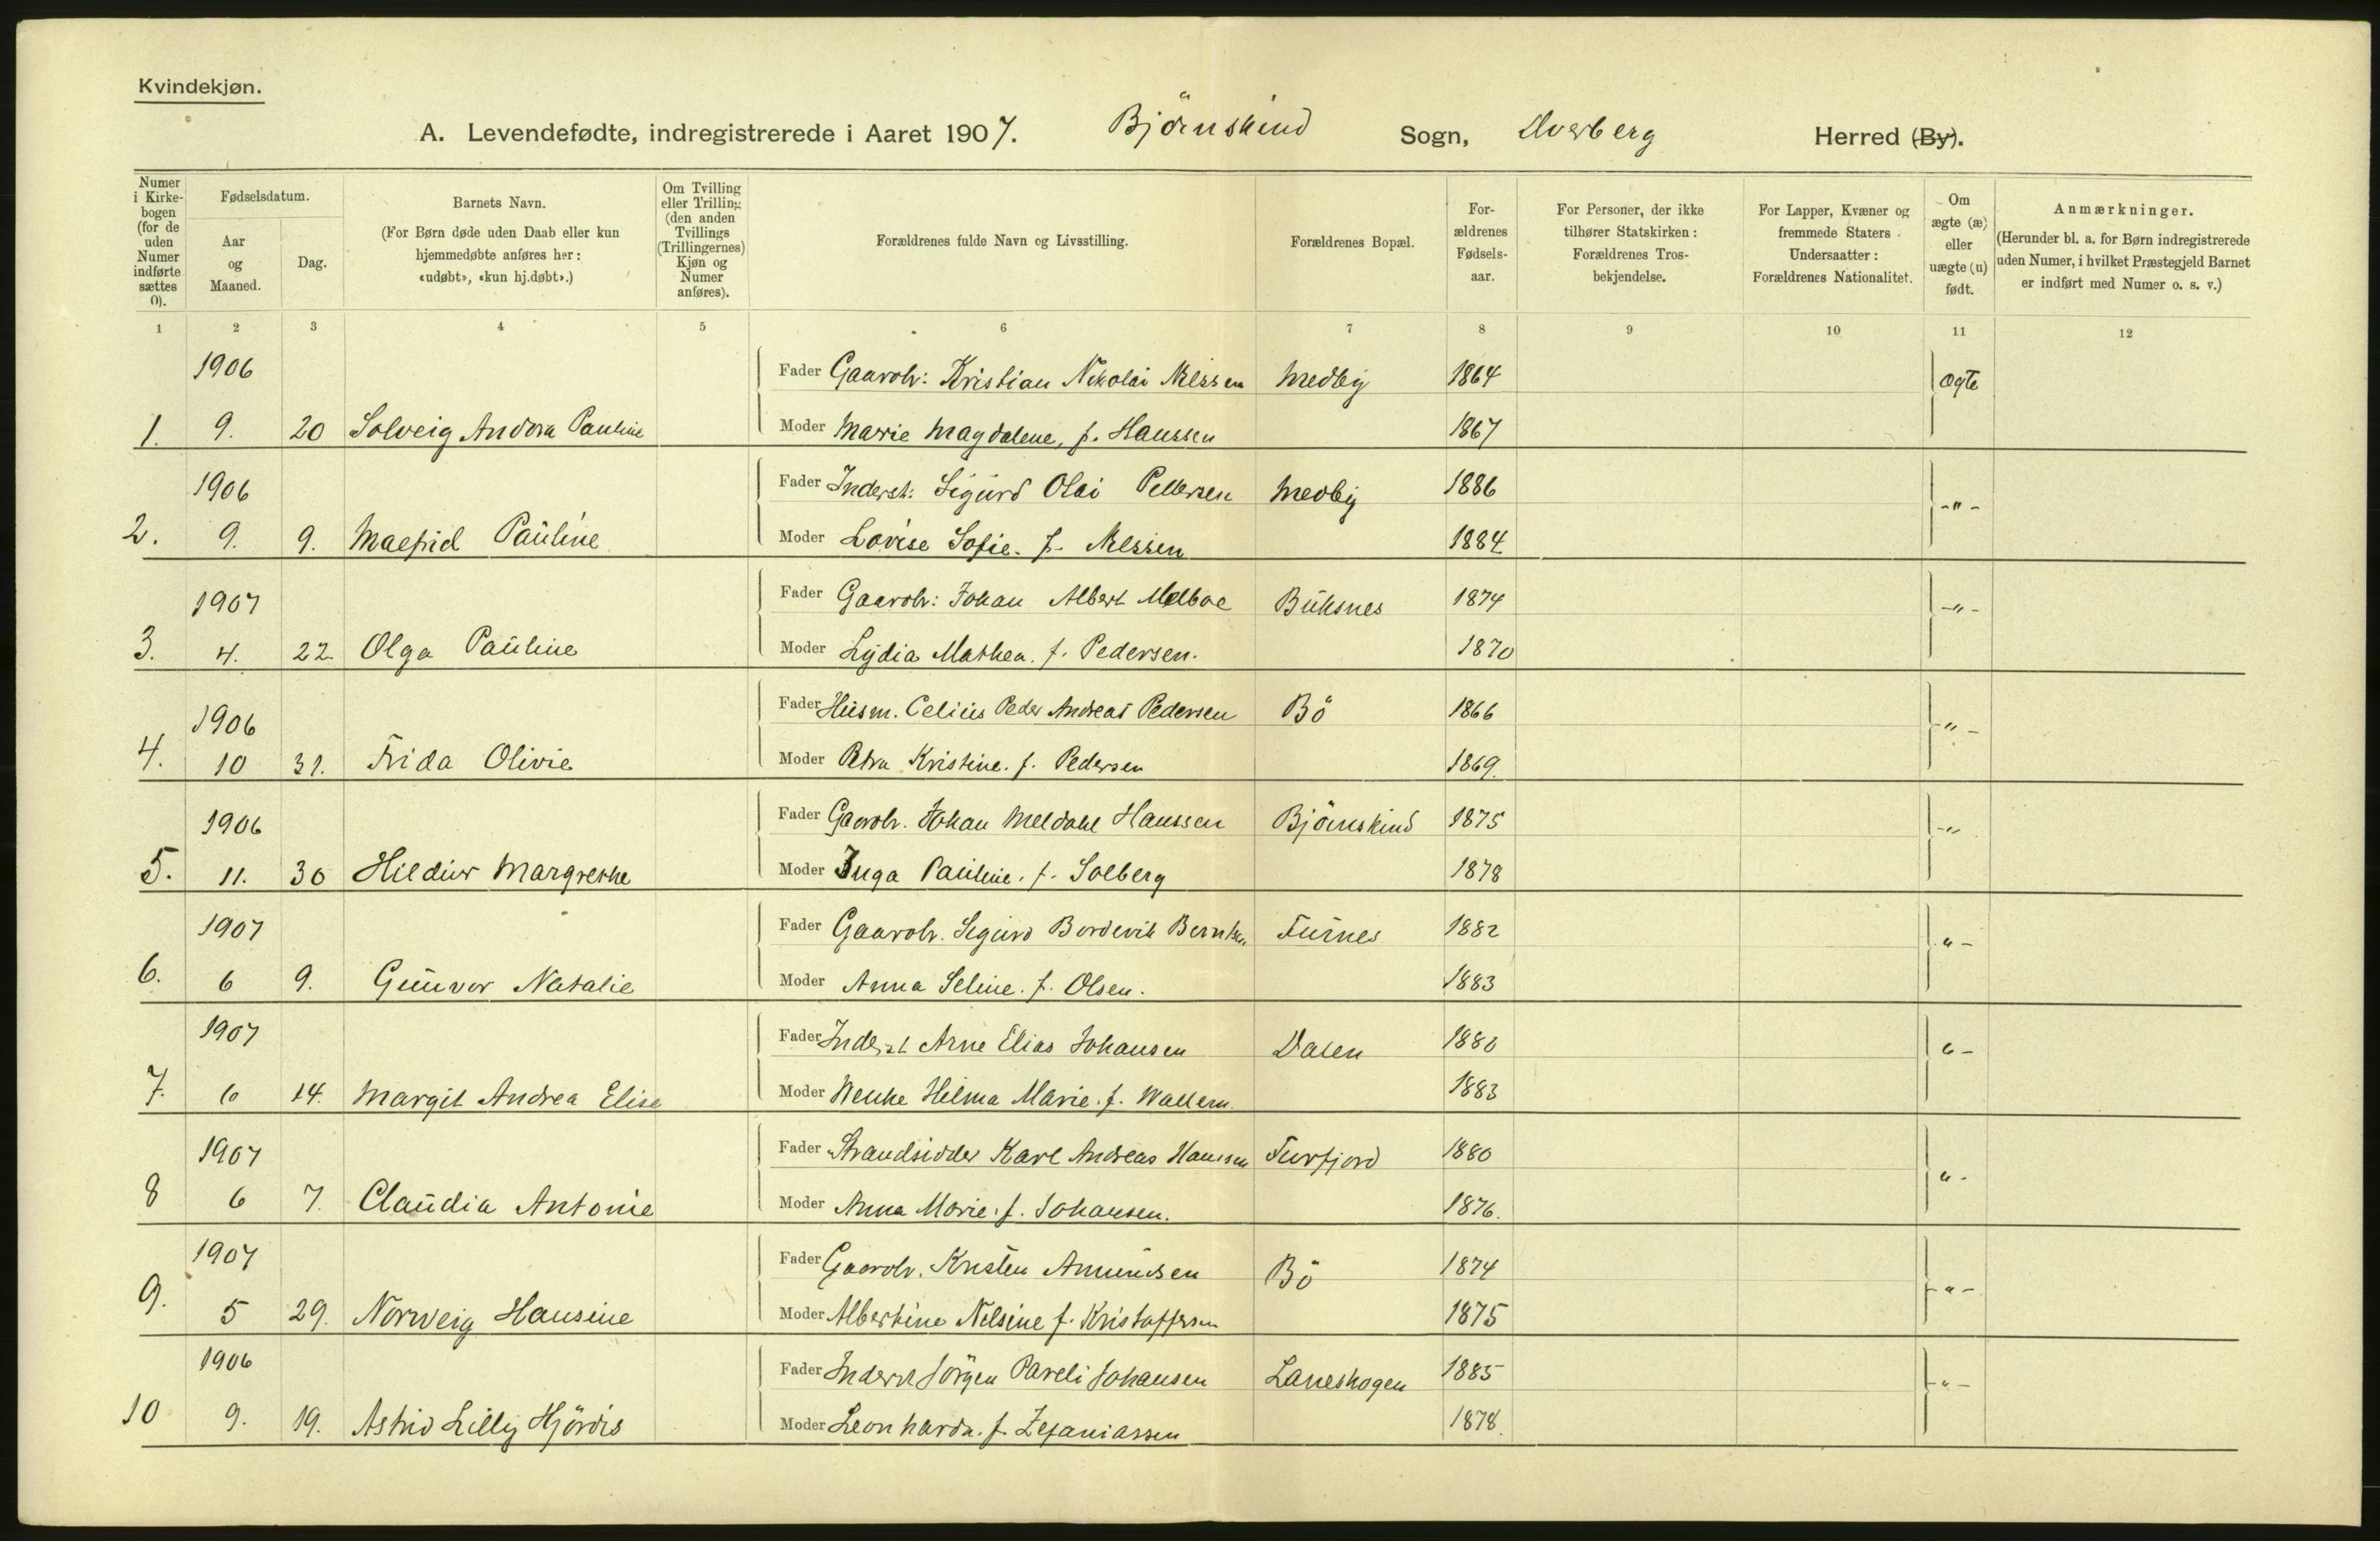 Kvindekjøn.
A. Levendefødte, indregistrerede i Aaret 1907. Björnskind Sogn, Dverberg Herred (By).
Numer i Kirke-bogen (for de uden Numer indførte sættes 0).
Fødselsdatum.
Aar og Maaned.
Dag.
Barnets Navn.
(For Børn døde uden Daab eller kun hjemmedøbte anføres her: «udøbt», «kun hj.døbt».)
Om Tvilling eller Trilling (den anden Tvillings (Trillingernes) Kjøn og Numer anføres).
Forældrenes fulde Navn og Livsstilling.
Forældrenes Bopæl.
For-ældrenes Fødsels-aar.
For Personer, der ikke tilhører Statskirken: Forældrenes Tros-bekjendelse.
For Lapper, Kvæner og fremmede Staters Undersaatter: Forældrenes Nationalitet.
Om ægte (æ) eller uægte (u) født.
Anmærkninger.
(Herunder bl. a. for Børn indregistrerede uden Numer, i hvilket Præstegjeld Barnet er indført med Numer o. s. v.)
1 2 3 4 5 6 7 8 9 10 11 12
1906 Fader Gaardbr: Kristian Nikolai Nilssen Medby 1864 ægte
1. 9. 20 Solveig Andora Pauline Moder Marie Magdalene, f. Hanssen 1867
1906 Fader Inderst: Sigurd Olai Pettersen Medby 1886 -"-
2. 9. 9. Pauline Moder Lovise Sofie. f. Nilssen 1884
1907 Fader Gaardbr: Johan Albert Melboe Buksnes 1874 -"-
3. 4. 22 Olga Pauline Moder Lydia Mathea. f. Pedersen. 1870
1906 Fader Husm. Celius Peder Andreas Pedersen Bö 1866 -"-
4. 10 31. Frida Olivie Moder Petra Kristine. f. Pedersen 1869.
1906 Fader Gaardbr. Johan Meldahl Hanssen Björnskind 1875 -"
5. 11. 30 Hildur Margrethe Moder Inga Pauline. f. Solberg 1878
1907 Fader Gaardbr. Sigurd Bordevik Berntsen Furnes 1882 "-
6. 6 9. Gunvor Natalie Moder Anna Seline. f. Olsen. 1883
1907 Fader Inderst Arne Elias Johansen Dalen 1880 "-
7. 6 14. Margit Andrea Elise Moder Wenke Hilma Marie. f. Wallem. 1883
1907 Fader Strandsidder Karl Andreas Hanssen Furfjord 1880 "-
8 6 7. Claudia Antonie Moder Anna Marie. f. Johansen. 1876.
1907 Fader Gaardbr. Kristen Amundsen Bö 1874 -"-
9. 5 29. Norveig Hansine Moder Albertine Nilsine f. Kristoffersen 1875
1906 Fader Inderst Jörgen Pareli Johansen Laneskogen 1885 -"-
10 9. 19. Astrid Lilly Hjördis Moder Leonharda. f. Zefaniassen 1878.